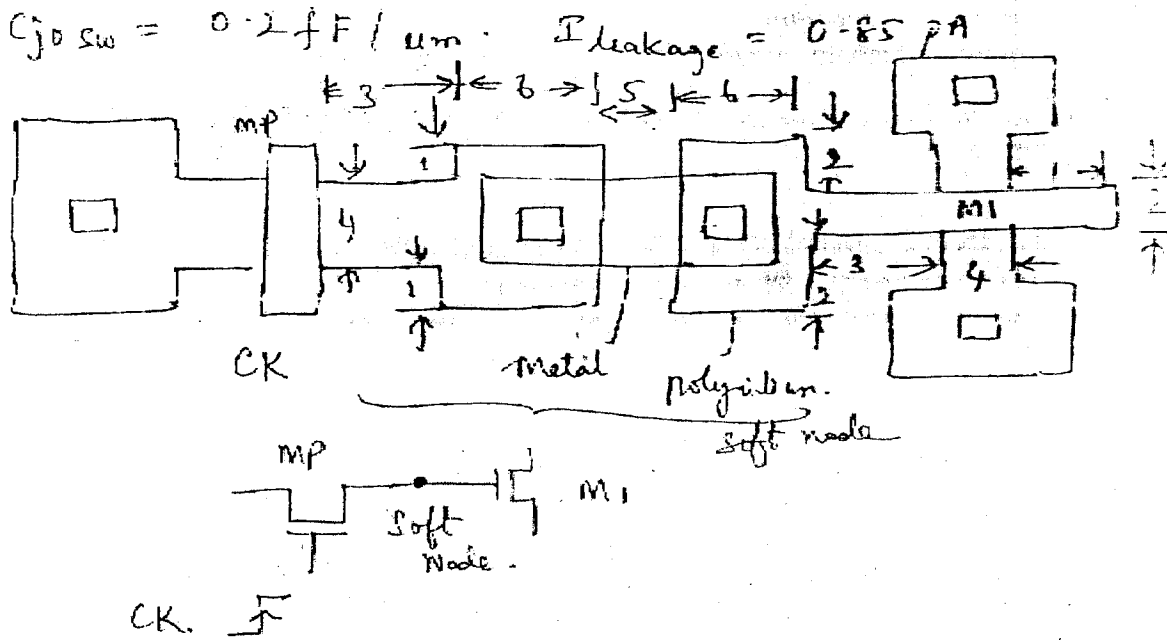 Cj0 sw = 0.2 fF / um. I leakage = 0.85 pA
3 6 5 6
MP
1 2 1
4 M1 2
1 3 4
2
CK metal polysilicon.
soft node
MP
M1
Soft
Node.
CK.